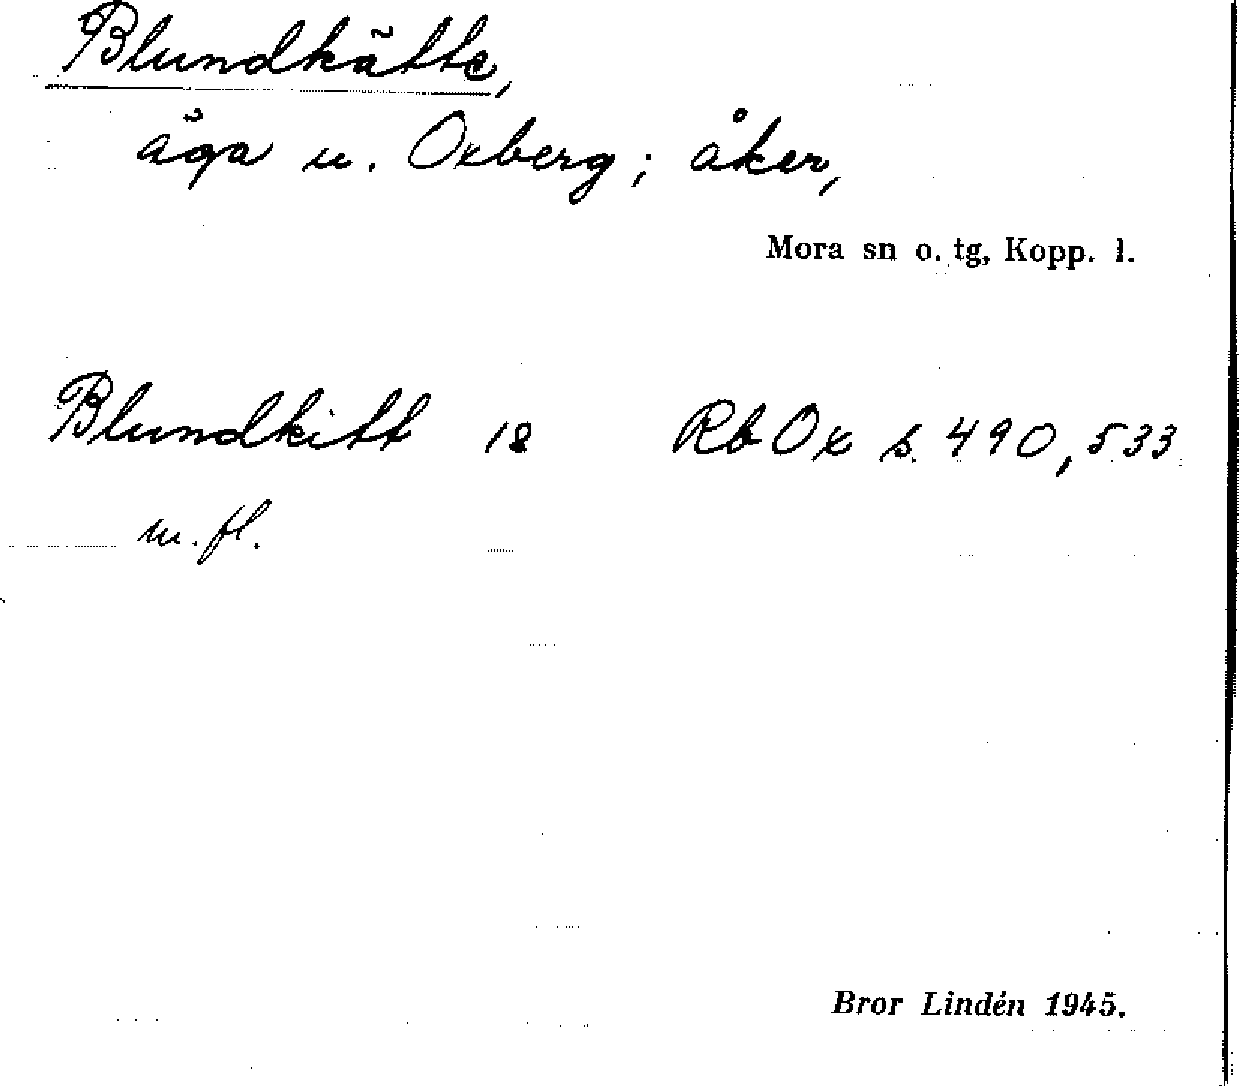 Blundkätte,
äga u. Oxberg; åker,
Mora sn o. tg, Kopp. l.
Blundkitt 18 Rb Ox s. 490, 533
m. fl.
Bror Lindén 1945.